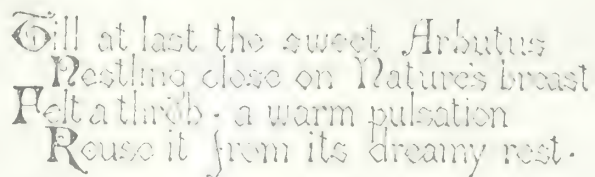 Till at last the sweet Arbutus
Nestling close on Nature's breast
Felt a throb - a warm pulsation
Rouse it from its dreamy rest.